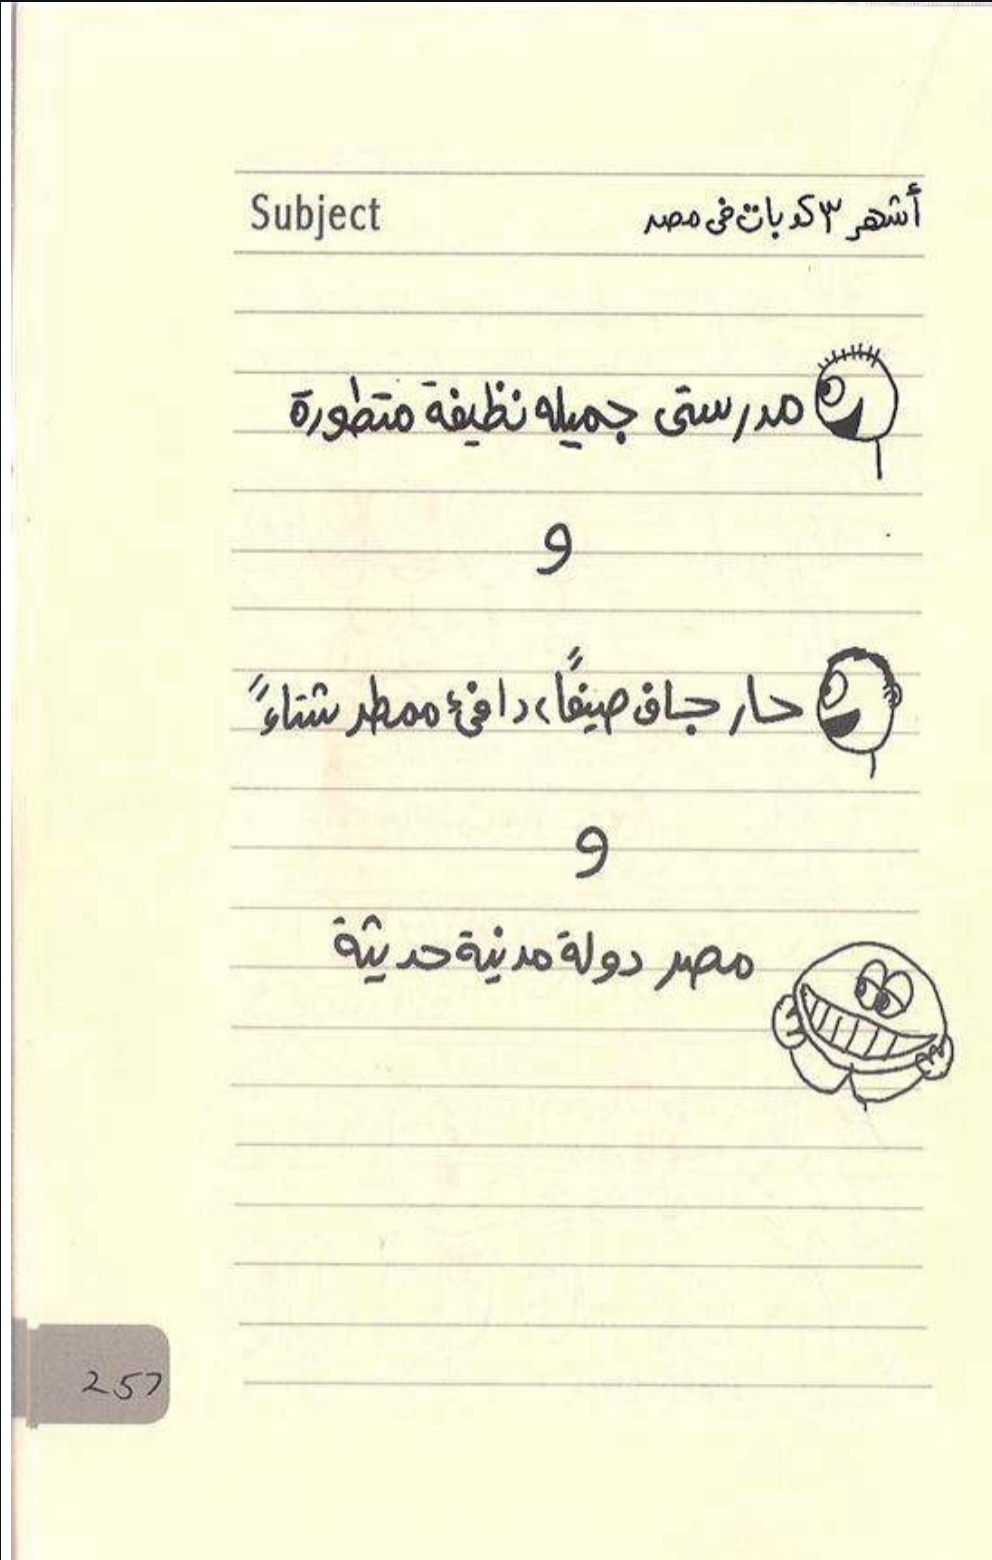 Subject أشهر ٣ كدبات فى مصر
مدرستى جميله نظيفة متطورة
و
حار جاف صيفاً، دافئ ممطر شتاءً
و
مصر دولة مدنية حديثة
257